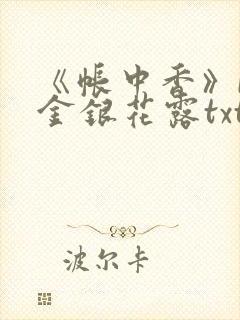 《帐中香》
金银花露txt
波尔卡